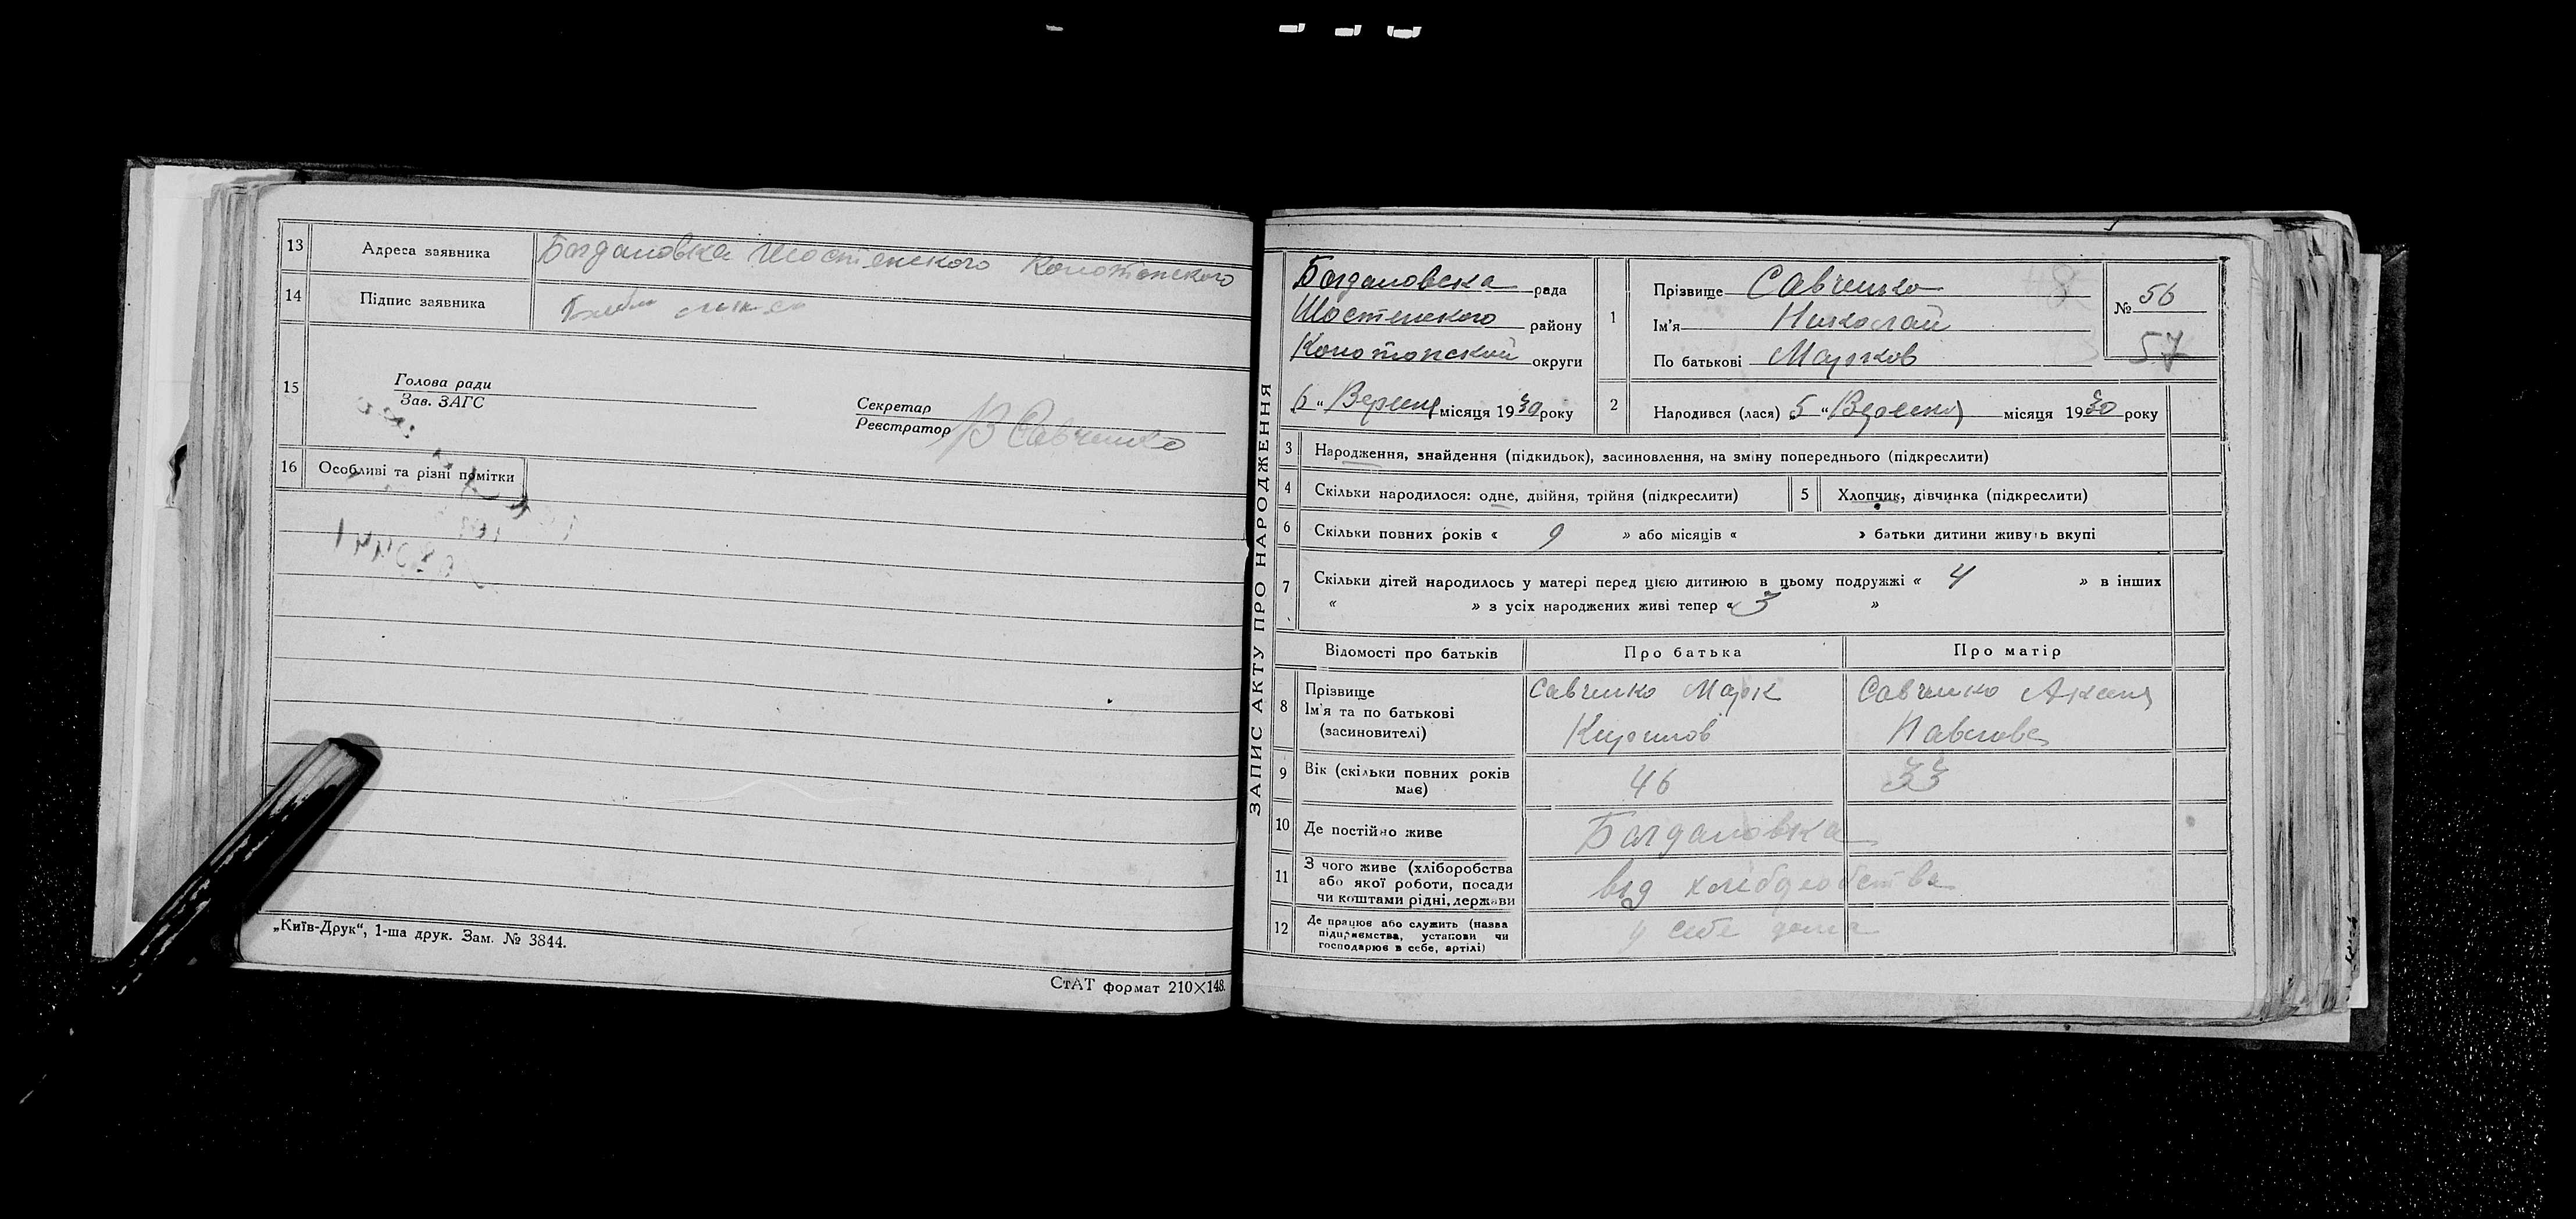 13 Адреса заявника Богдановка Шостенского Конотопского
14 Підпис заявника
15 Голова ради
Зав. ЗАГС
Секретар
Реєстратор В Савченко
16 Особливі та різні помітки
„Київ-Друк“, 1-ша друк. Зам. № 3844.
СтАТ формат 210×148.
ЗАПИС АКТУ ПРО НАРОДЖЕННЯ
Богдановска рада
Шостенского району
Конотопской округи
6 „ Вересня місяця 1930 року
1 Прізвище Савченко
Ім'я Николай
По батькові Марков
№ 56
57
2 Народився (лася) 5 „ Вересня місяця 1930 року
3 Народження, знайдення (підкидьок), засиновлення, на зміну попереднього (підкреслити)
4 Скільки народилося: одне, двійня, трійня (підкреслити)
5 Хлопчик, дівчинка (підкреслити)
6 Скільки повних років « 9 » або місяців « » батьки дитини живуть вкупі
7 Скільки дітей народилось у матері перед цією дитиною в цьому подружжі « 4 » в інших
« » з усіх народжених живі тепер « 3 »
Відомості про батьків Про батька Про матір
8 Прізвище
Ім'я та по батькові
(засиновителі)
Савченко Марк
Кирилов
Савченко Аксеня
Павлова
9 Вік (скільки повних років
має)
46 33
10 Де постійно живе Богдановка
11 З чого живе (хліборобства
або якої роботи, посади
чи коштами рідні, держави
від хліборобства
12 Де працює або служить (назва
підприємства, установи чи
господарює в себе, артілі)
у себе дома